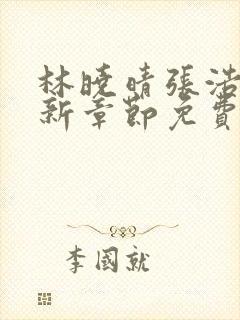 林曉晴張浩
新章節免費
李國就